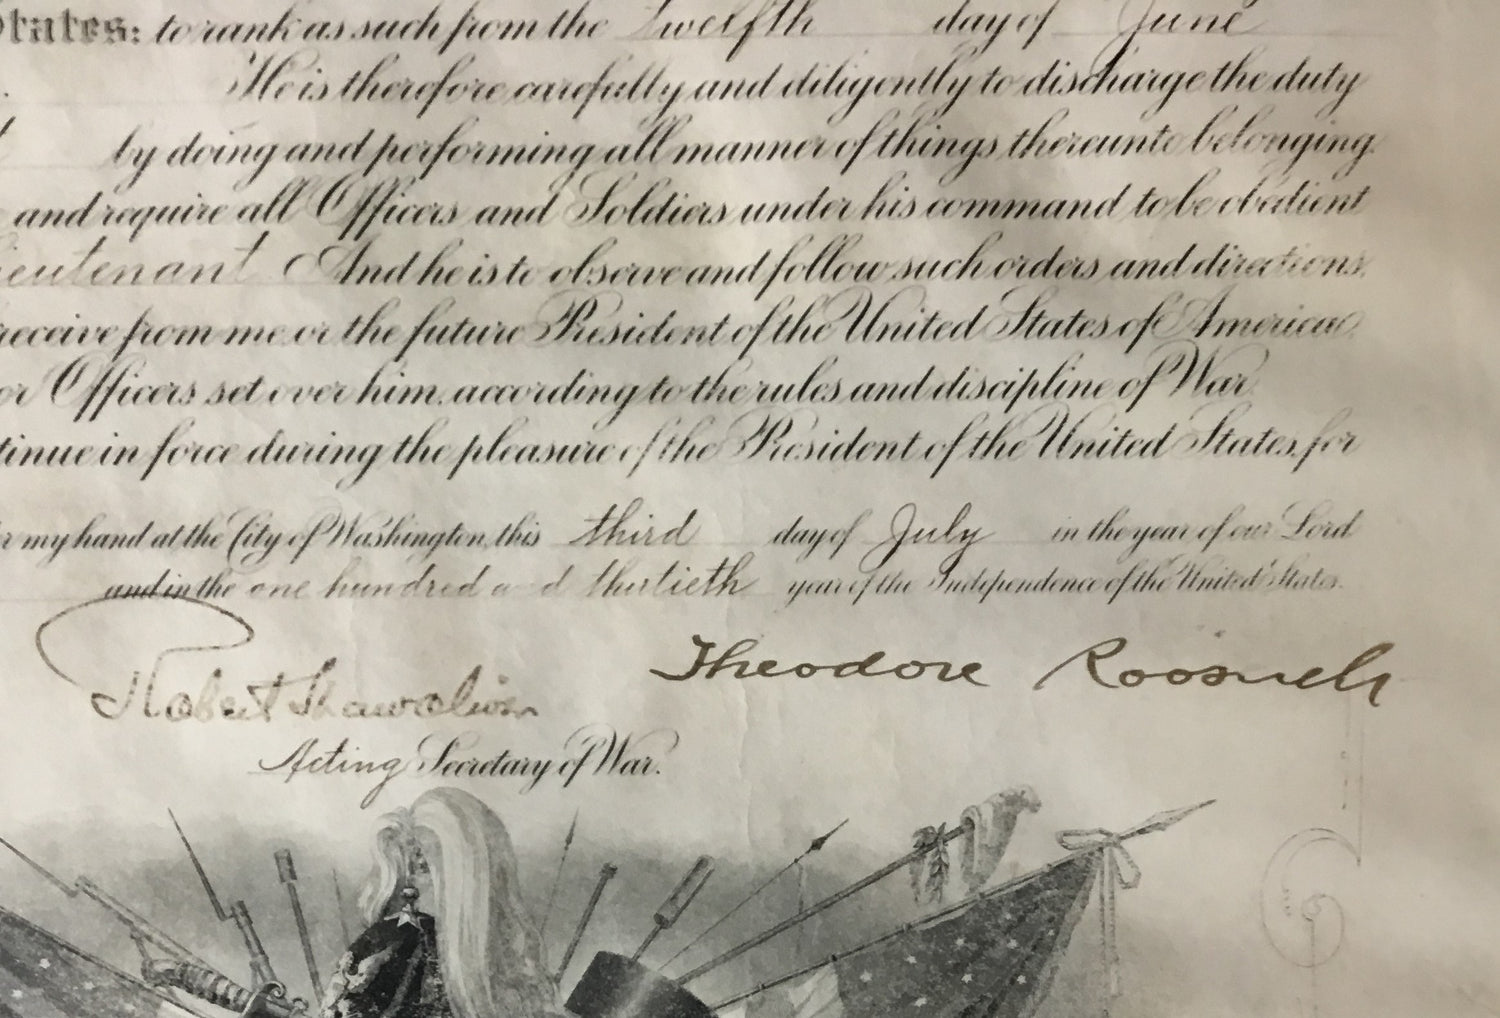 States: to rank as such from the twelfth day of June
He is therefore carefully and diligently to discharge the duty
by doing and performing all manner of things thereunto belonging.
and require all Officers and Soldiers under his command to be obedient
ieutenant And he is to observe and follow such orders and directions,
receive from me, or the future President of the United States of America,
or Officers set over him, according to the rules and discipline of War.
tinue in force during the pleasure of the President of the United States, for
r my hand at the City of Washington, this third day of July in the year of our Lord
and in the one hundred and thirtieth year of the Independence of the United States.
Theodore Roosevelt
Robert Shaw Oliver
Acting Secretary of War.